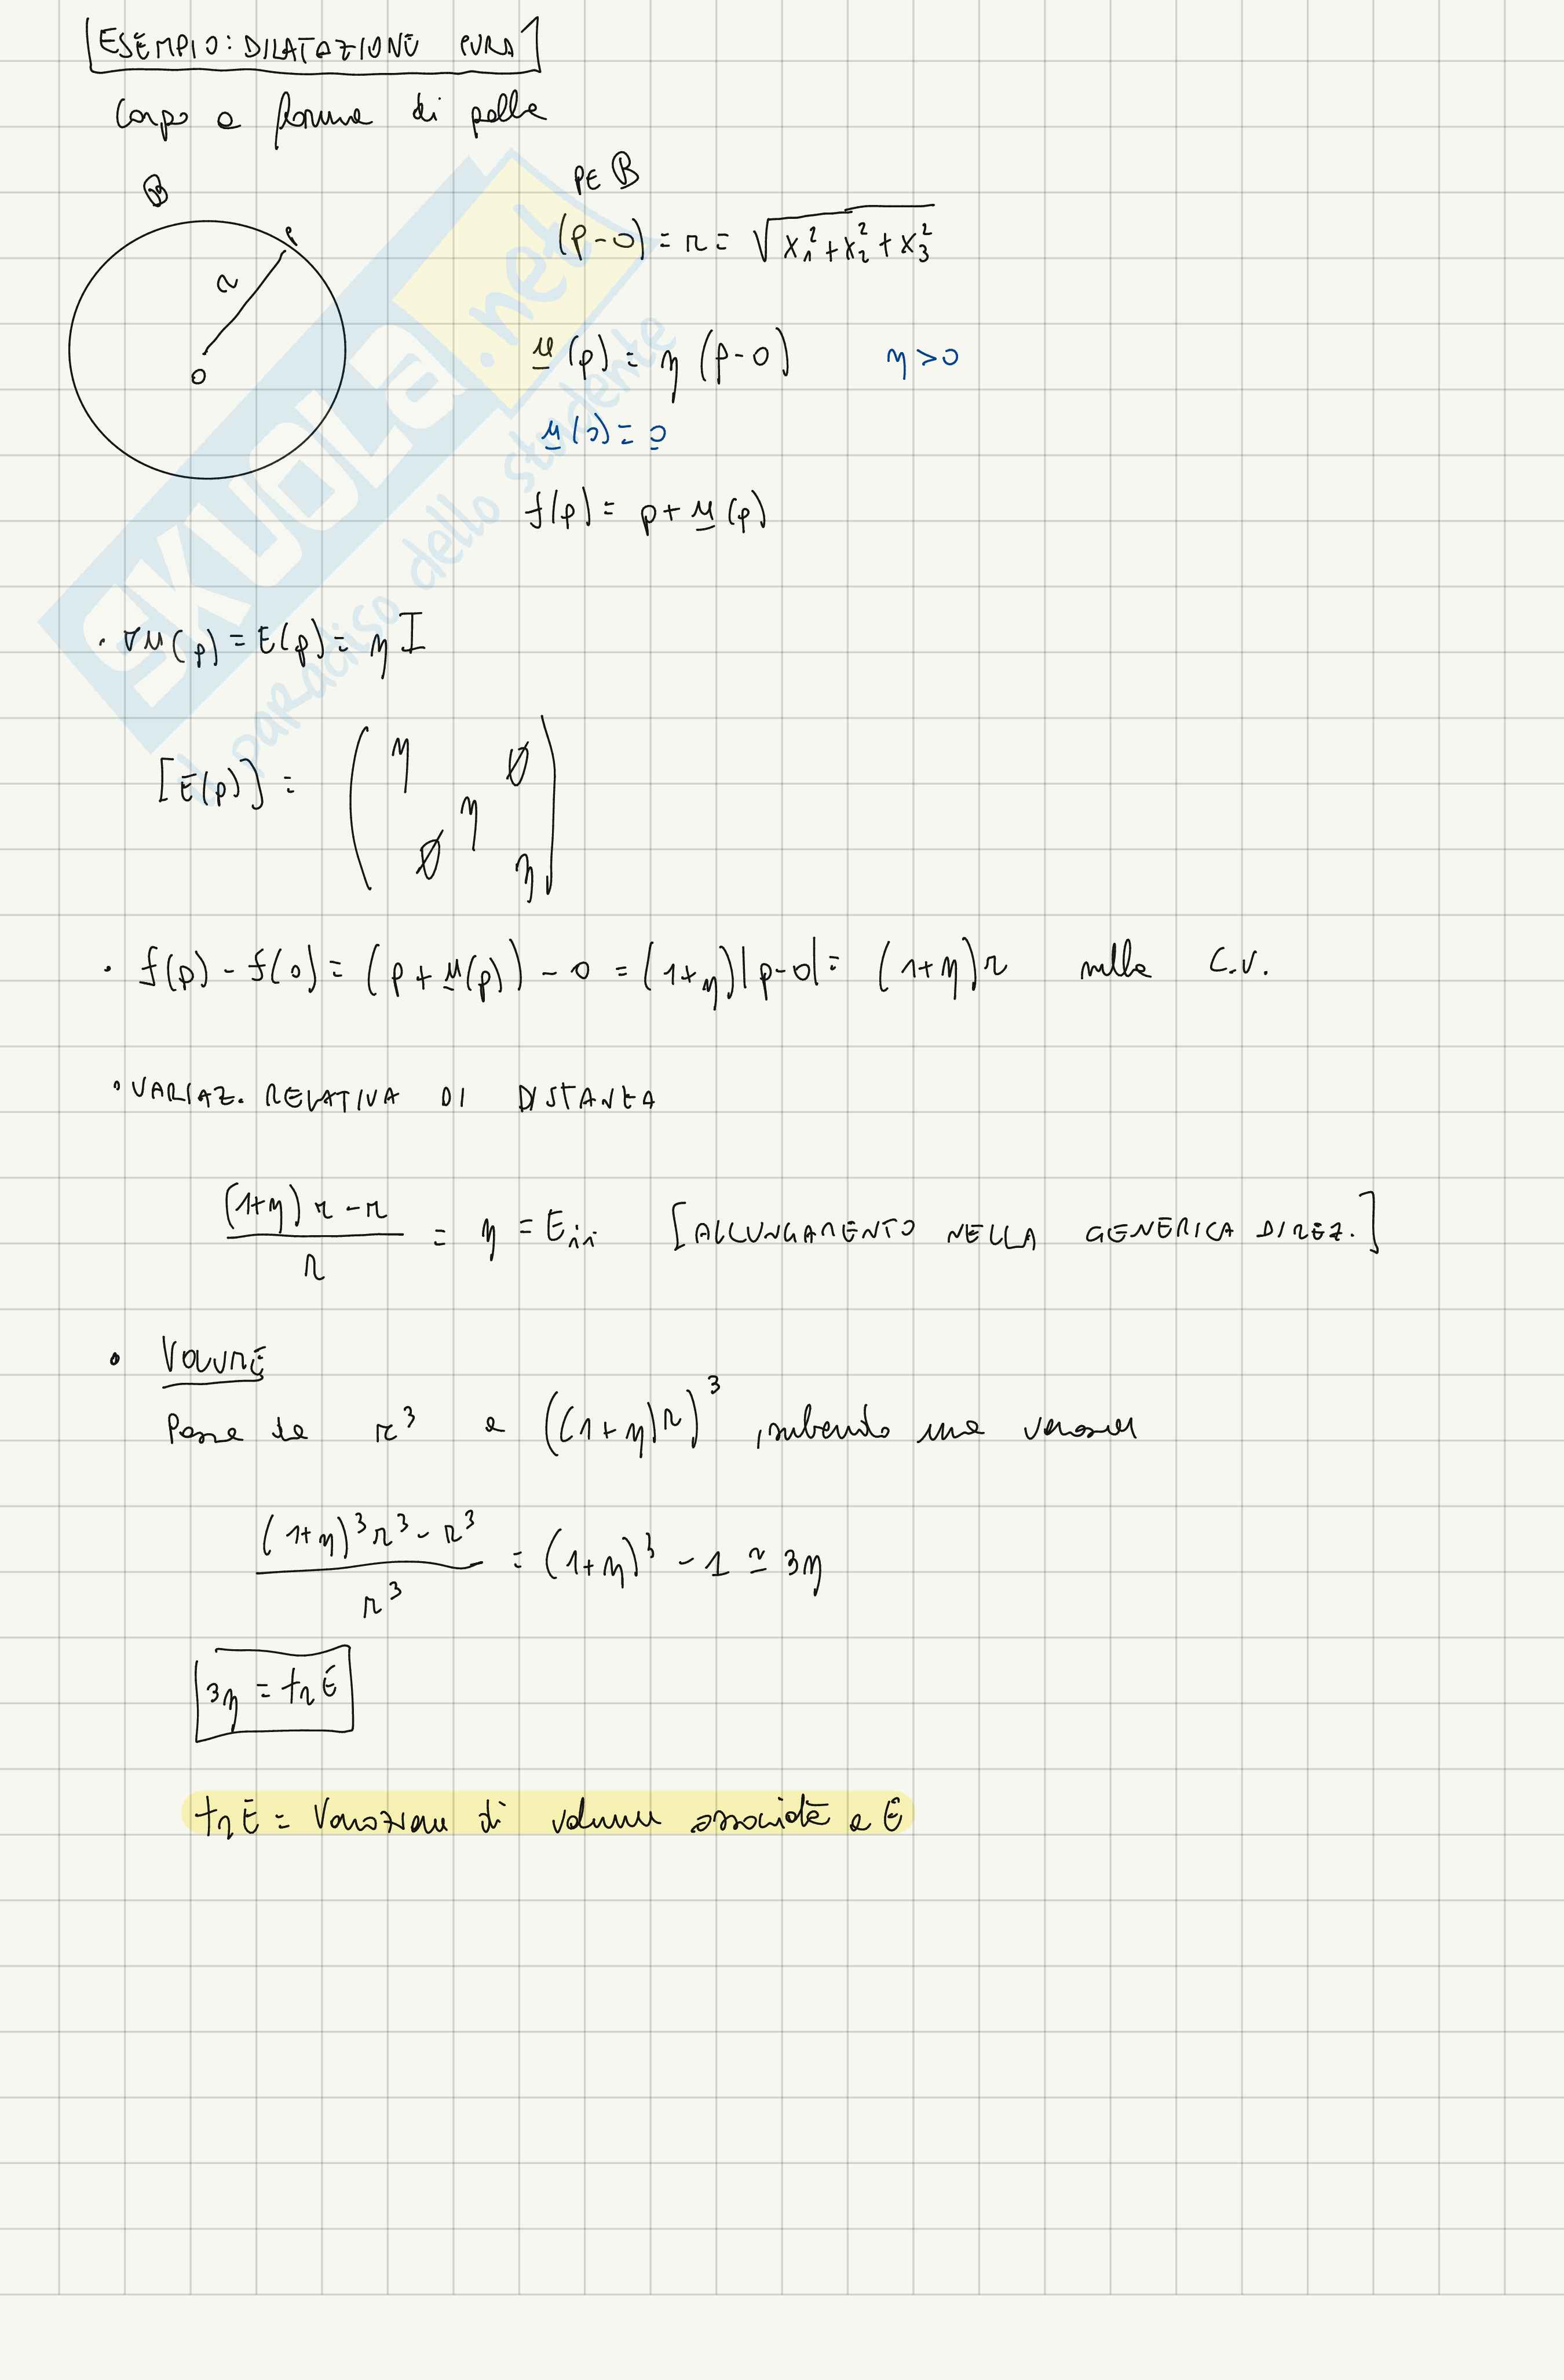 ESEMPIO: DILATAZIONE PURA
Corpo a forma di palla
B
P∈ B
P
(P-O) = r = √x₁²+x₂²+x₃²
r
O
u(p) = η (p-o) η>0
u(o) = o
f(p) = p + u(p)
SKUOLA.net
il paradiso dello studente
· ∇u(p) = E(p) = η I
[E(p)] = ( η 0
η
0 η )
· f(p) - f(o) = (p + u(p)) - o = (1+η)|p-o| = (1+η)r nella C.V.
· VARIAZ. RELATIVA DI DISTANZA
(1+η) r - r
/ r = η = Eᵢᵢ [ALLUNGAMENTO NELLA GENERICA DIREZ.]
· VOLUME
Passa da r³ a ((1+η)r)³, subendo una
(1+η)³r³ - r³
/ r³ = (1+η)³ - 1 ≃ 3η
3η = tr E
tr E = Variazione di volume associata a E